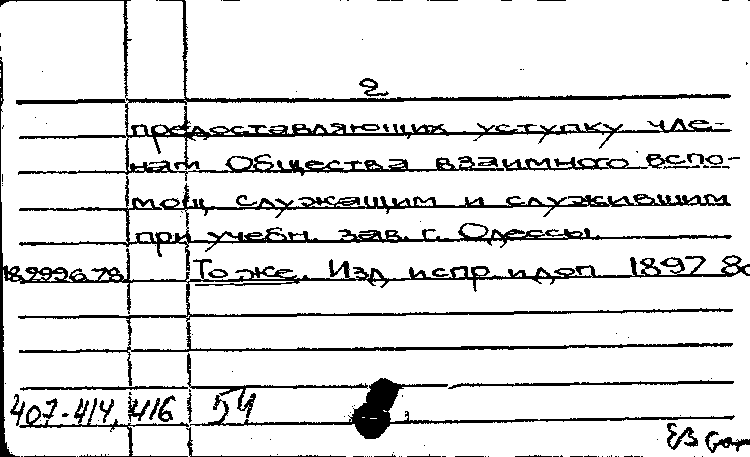 2
предоставляющих уступку чле-
нам Общества взаимного вспо-
мощ. служащим и служившим
при учебн. зав. г. Одессы.
18.299б.78. То же. Изд. испр. и доп. 1897 8о
407-414, 416 54